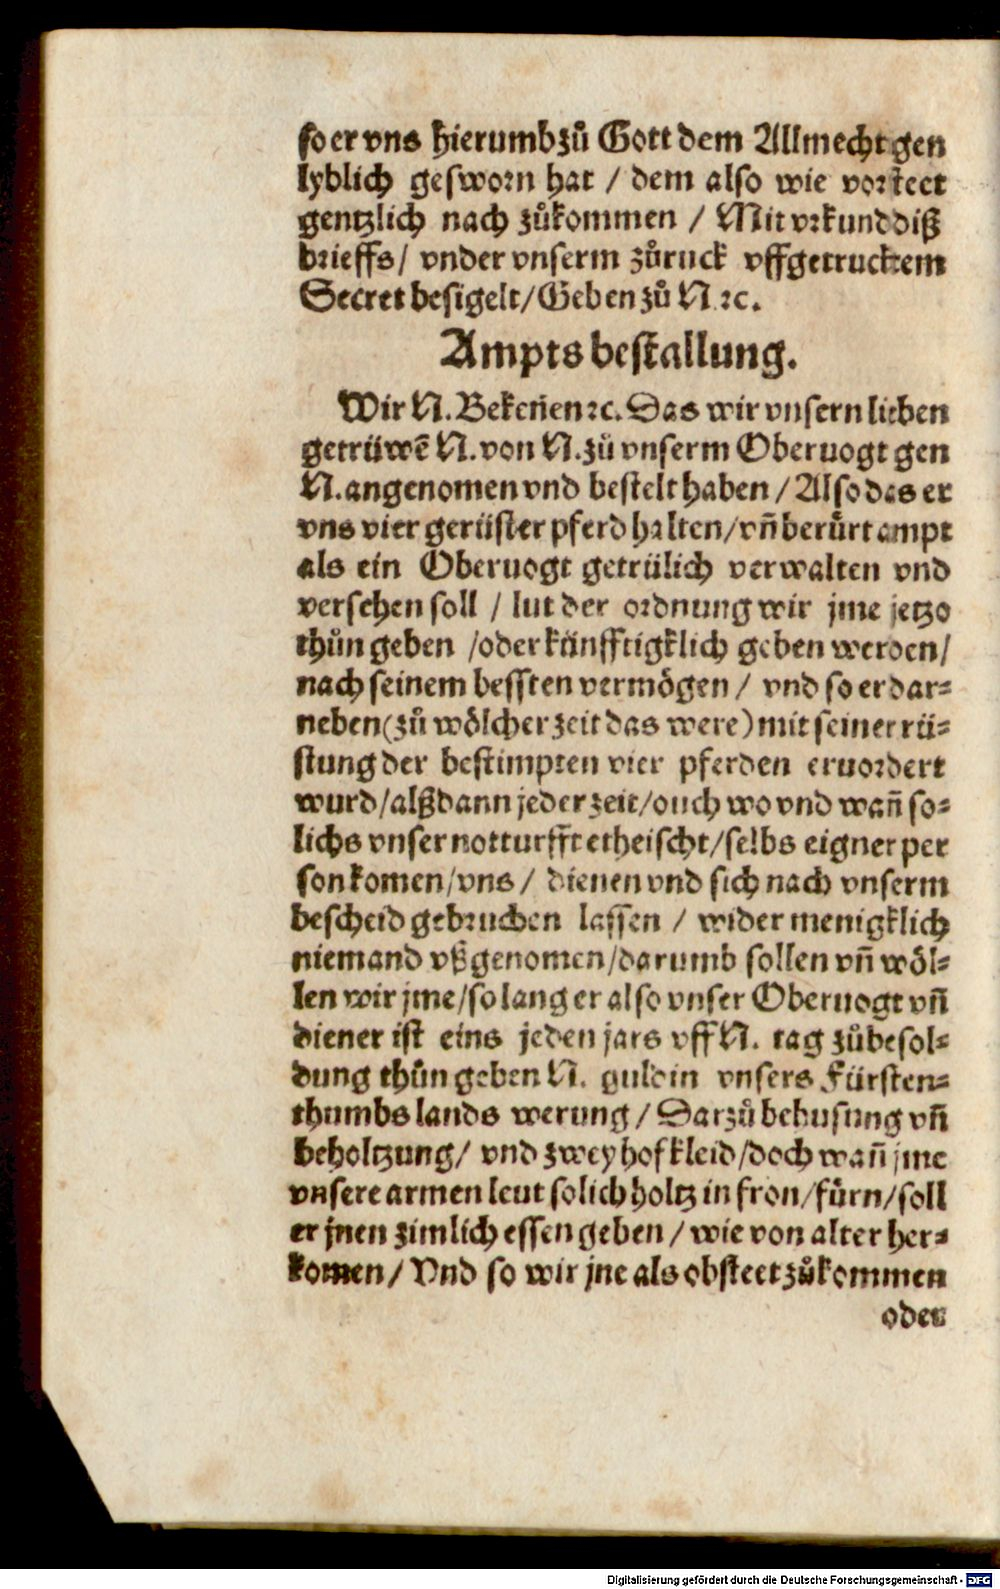 so er vns hierumb zů Gott dem Allmechtgen
lyblich geswoꝛn hat / dem also wie voꝛsteet
gentzlich nach zůkommen / Mit vꝛkund diß
bꝛieffs / vnder vnserm zůruck vffgetrucktem
Secret besigelt / Geben zů N ꝛc.
Ampts bestallung.
Wir N. Bekeñen ꝛc. Das wir vnsern lieben
getrüwē N. von N. zů vnserm Oberuogt gen
N. angenomen vnd bestelt haben / Also das er
vns vier gerüster pferd halten / vñ berůrt ampt
als ein Oberuogt getrülich verwalten vnd
versehen soll / lut der oꝛdnung wir jme jetzo
thůn geben / oder künfftigklich geben werden /
nach seinem bessten vermögen / vnd so er dar⸗
neben (zů wölcher zeit das were) mit seiner rü⸗
stung der bestimpten vier pferden eruoꝛdert
wurd / alßdann jeder zeit / ouch wo vnd wañ so⸗
lichs vnser notturfft erheischt / selbs eigner per
son komen / vns / dienen vnd sich nach vnserm
bescheid gebꝛuchen lassen / wider menigklich
niemand vßgenomen / darumb sollen vñ wöl⸗
len wir jme / so lang er also vnser Oberuogt vñ
diener ist eins jeden jars vff N. tag zů besol⸗
dung thůn geben N. guldin vnsers Fürsten⸗
thumbs lands werung / Darzů behusung vñ
beholtzung / vnd zwey hofkleid / doch wañ jme
vnsere armen leut solich holtz in fron / fürn / soll
er jnen zimlich essen geben / wie von alter her⸗
komen / Vnd so wir jne als obsteet zůkommen
oder
Digitalisierung gefördert durch die Deutsche Forschungsgemeinschaft - DFG